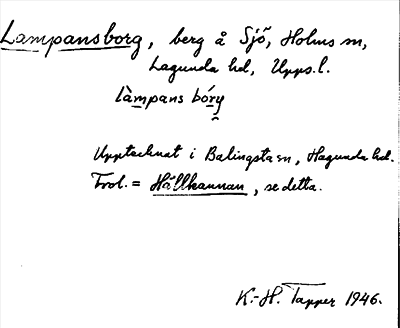 Lampansborg, berg å Sjö, Holms sn,
Lagunda hd, Upps. l.
làmpans bóry
Upptecknat i Balingsta sn, Hagunda hd.
Trol. = Hällkannan, se detta.
K.-H. Tapper 1946.